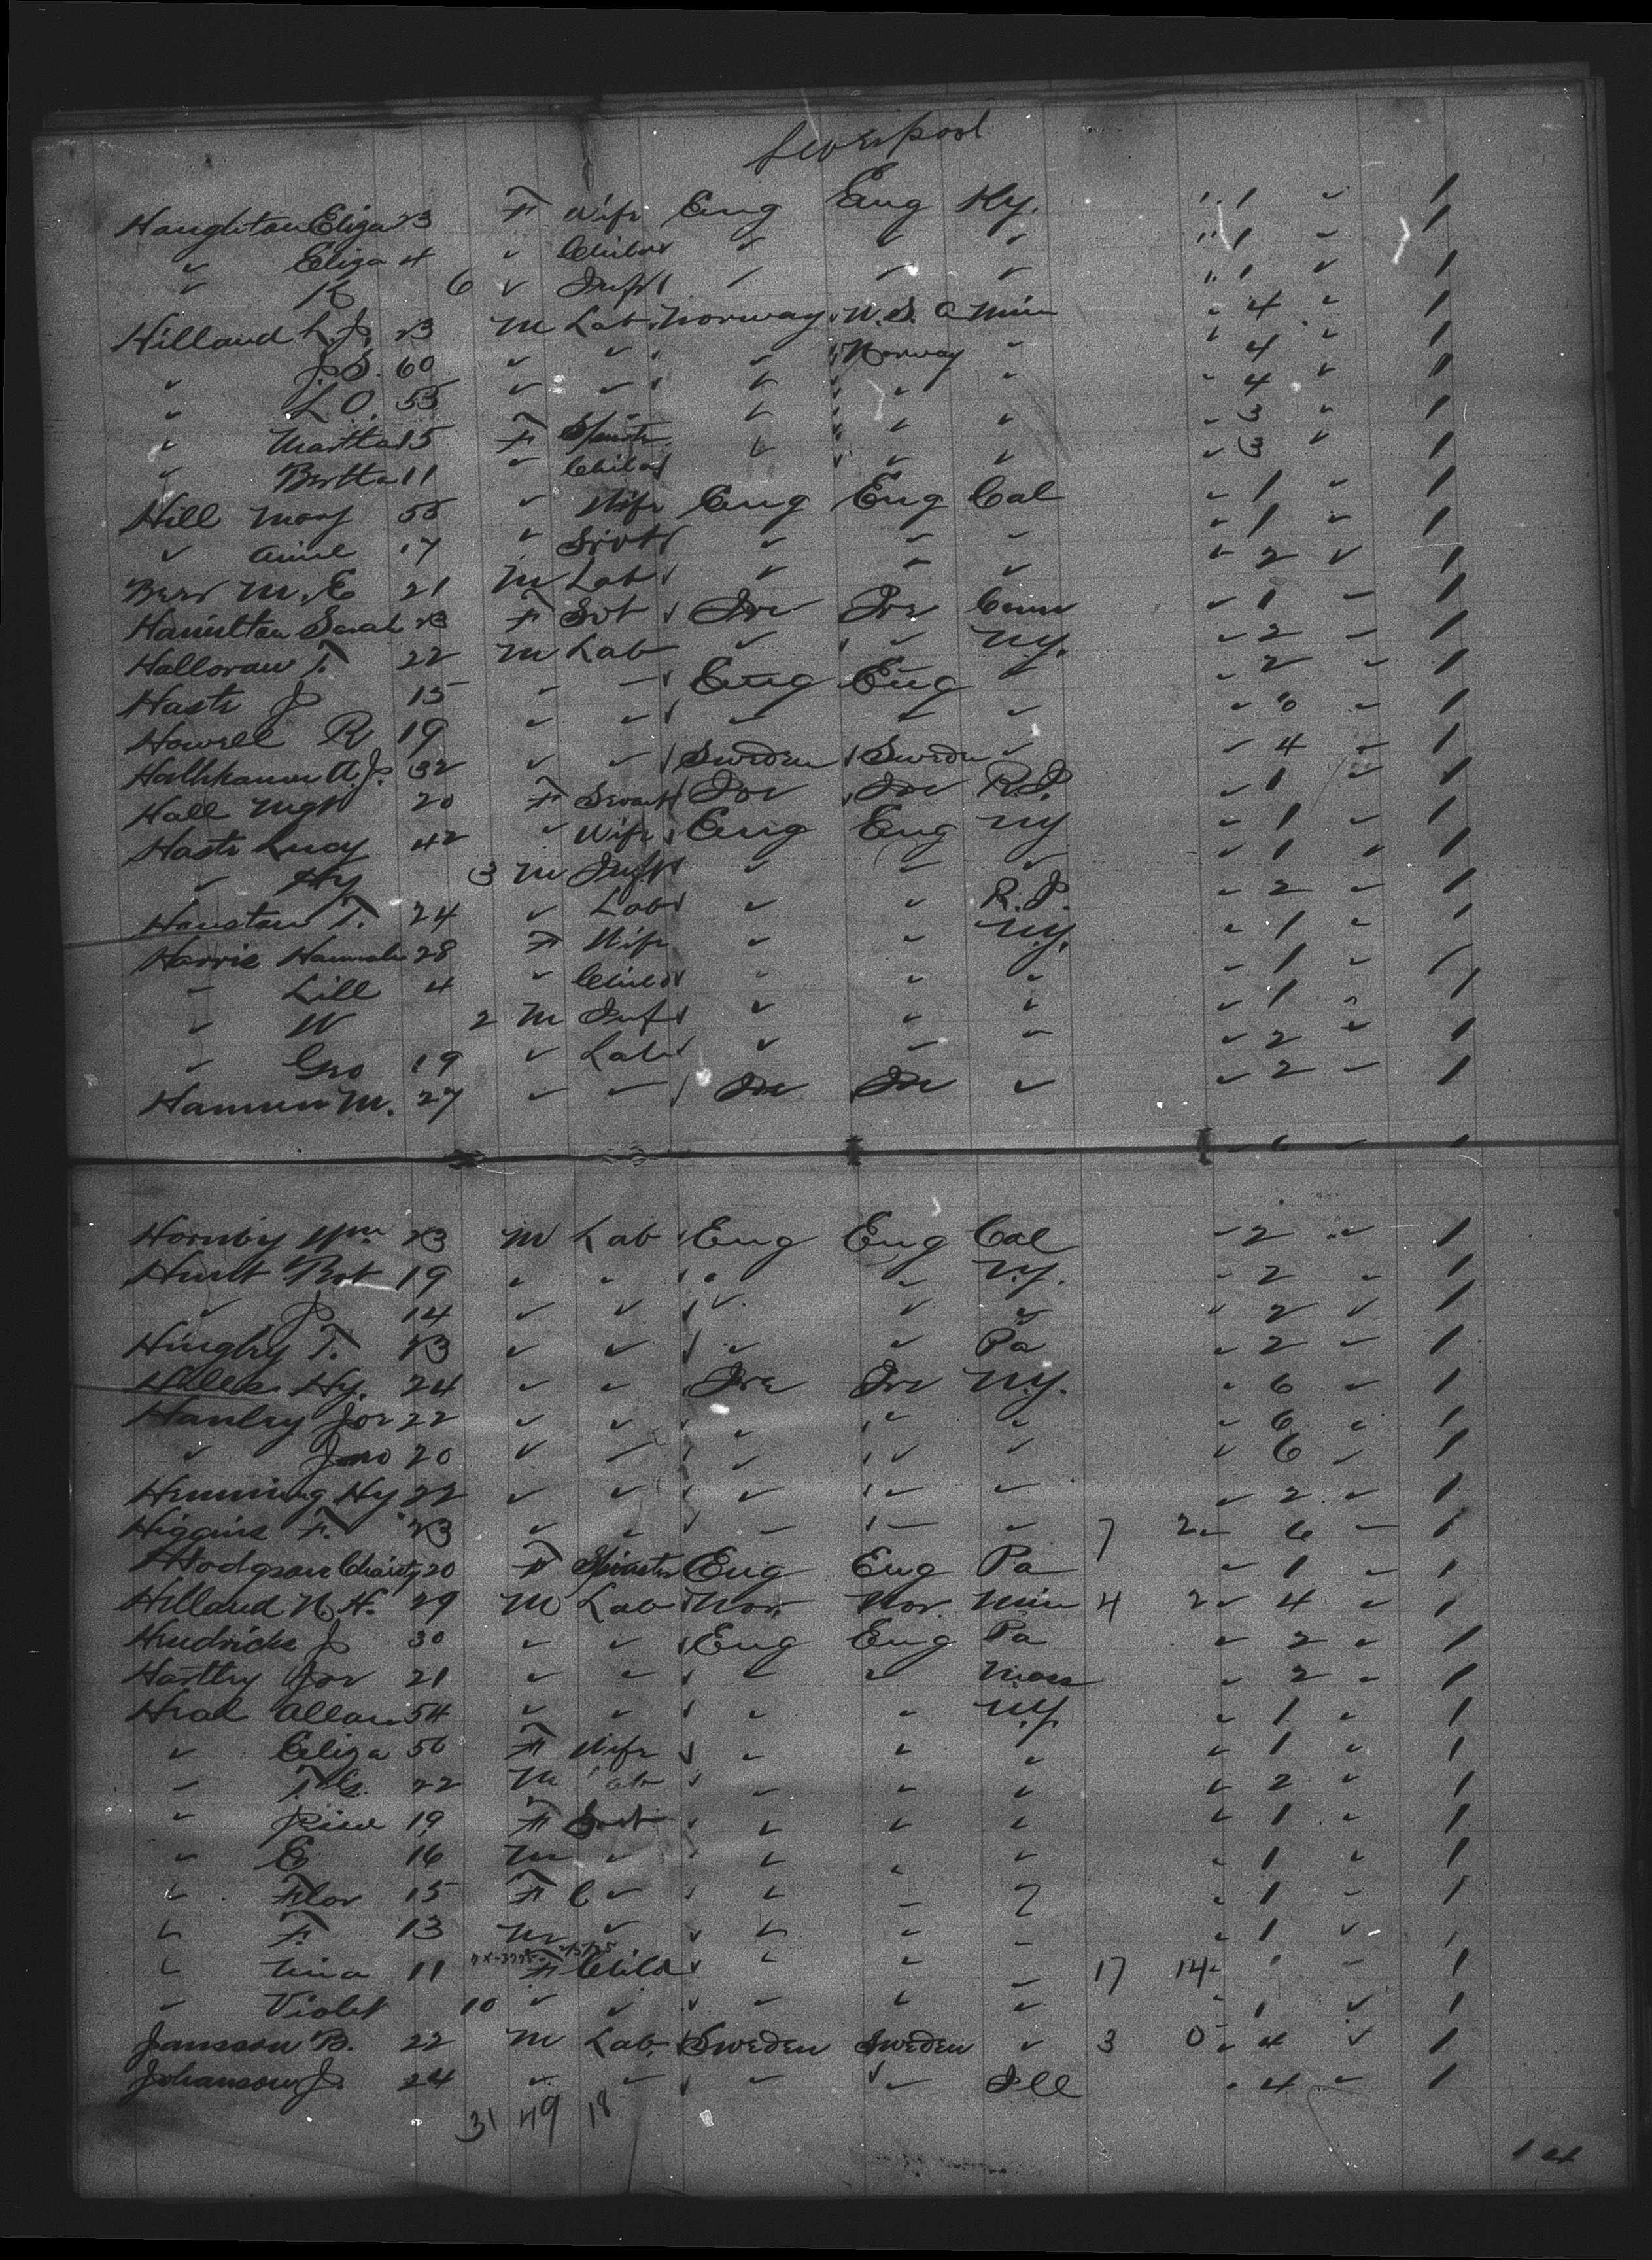 Liverpool
Haughton Eliza 23 F Wife Eng Eng Ky. " 1 ✓ 1
✓ Eliza 4 ✓ Child ✓ ✓ ✓ " 1 ✓ 1
✓ 6 ✓ Inft ✓ ✓ ✓ " 1 ✓ 1
Hilland L.J. 23 M Lab Norway U.S.A Min ✓ 4 ✓ 1
J.S. 60 ✓ ✓ ✓ Norway ✓ ✓ 4 ✓ 1
✓ L.O. 55 ✓ ✓ ✓ ✓ ✓ ✓ 4 ✓ 1
✓ Martha 15 F Spinstr ✓ ✓ ✓ ✓ 3 ✓ 1
✓ Bertha 11 ✓ Child ✓ ✓ ✓ ✓ 3 ✓ 1
Hill Mary 55 ✓ Wife Eng Eng Cal ✓ 1 ✓ 1
✓ Annie 17 ✓ Srvt ✓ ✓ ✓ ✓ 1 ✓ 1
M.E 21 M Lab ✓ ✓ ✓ ✓ 2 ✓ 1
Hamilton Sarah 23 F Svt Ire Ire Conn ✓ 1 ✓ 1
Halloran T. 22 M Lab ✓ ✓ N.Y. ✓ 2 ✓ 1
Haste J 15 ✓ ✓ Eng Eng ✓ ✓ 2 ✓ 1
Howell R 19 ✓ ✓ ✓ ✓ ✓ ✓ ✓ 1
A.J. 32 ✓ ✓ Sweden Sweden ✓ ✓ 4 ✓ 1
Hall Mgt 20 F Servt Ire Ire R.I. ✓ 1 ✓ 1
Haste Lucy 42 ✓ Wife Eng Eng NY ✓ 1 ✓ 1
✓ Hy 3 M Inft ✓ ✓ ✓ ✓ 1 ✓ 1
Houston T. 24 ✓ Lab ✓ ✓ R.I. ✓ 2 ✓ 1
Harris Hannah 28 F Wife ✓ ✓ N.Y. ✓ 1 ✓ 1
✓ Lill 4 ✓ Child ✓ ✓ ✓ ✓ 1 ✓ 1
✓ W 2 M Inft ✓ ✓ ✓ ✓ 1 ✓ 1
✓ Geo 19 ✓ Lab ✓ ✓ ✓ ✓ 2 ✓ 1
Hannen M. 27 ✓ ✓ Ire Ire ✓ ✓ 2 ✓ 1
Hornby Wm 23 M Lab Eng Eng Cal ✓ 2 ✓ 1
Hunt Rbt 19 ✓ ✓ ✓ ✓ N.Y. ✓ 2 ✓ 1
✓ J 14 ✓ ✓ ✓ ✓ ✓ ✓ 2 ✓ 1
Hingley T. 23 ✓ ✓ ✓ ✓ Pa ✓ 2 ✓ 1
Hy. 24 ✓ ✓ Ire Ire N.Y. ✓ 6 ✓ 1
Hanley Jos 22 ✓ ✓ ✓ ✓ ✓ ✓ 6 ✓ 1
✓ Jno 20 ✓ ✓ ✓ ✓ ✓ ✓ 6 ✓ 1
Henning Hy 22 ✓ ✓ ✓ ✓ ✓ ✓ 2 ✓ 1
Higgins F. 23 ✓ ✓ ✓ ✓ ✓ 7 2 ✓ 6 ✓ 1
Hodgson Charity 20 F Spinster Eng Eng Pa ✓ 1 ✓ 1
Hilland N.H. 29 M Lab Nor. Nor. Min 4 2 ✓ 4 ✓ 1
Hendricks J 30 ✓ ✓ Eng Eng Pa ✓ 2 ✓ 1
Hartley Jos 21 ✓ ✓ ✓ ✓ Mass ✓ 2 ✓ 1
Heal Allan 54 ✓ ✓ ✓ ✓ N.Y. ✓ 1 ✓ 1
✓ Eliza 50 F Wife ✓ ✓ ✓ ✓ 1 ✓ 1
✓ 22 M Lab ✓ ✓ ✓ ✓ 2 ✓ 1
✓ 19 F Servt ✓ ✓ ✓ ✓ 1 ✓ 1
✓ E. 16 M ✓ ✓ ✓ ✓ ✓ 1 ✓ 1
✓ Flor 15 F ✓ ✓ ✓ ✓ 1 ✓ 1
✓ F. 13 M ✓ ✓ ✓ ✓ ✓ 1 ✓ 1
✓ Nina 11 F Child ✓ ✓ ✓ 17 14 ✓ 1 ✓ 1
✓ Violet 10 ✓ ✓ ✓ ✓ ✓ ✓ 1 ✓ 1
Jansson B. 22 M Lab. Sweden Sweden ✓ 3 0 ✓ 4 ✓ 1
Johanson J. 24 ✓ ✓ ✓ ✓ Ill ✓ 4 ✓ 1
31 49 18
14